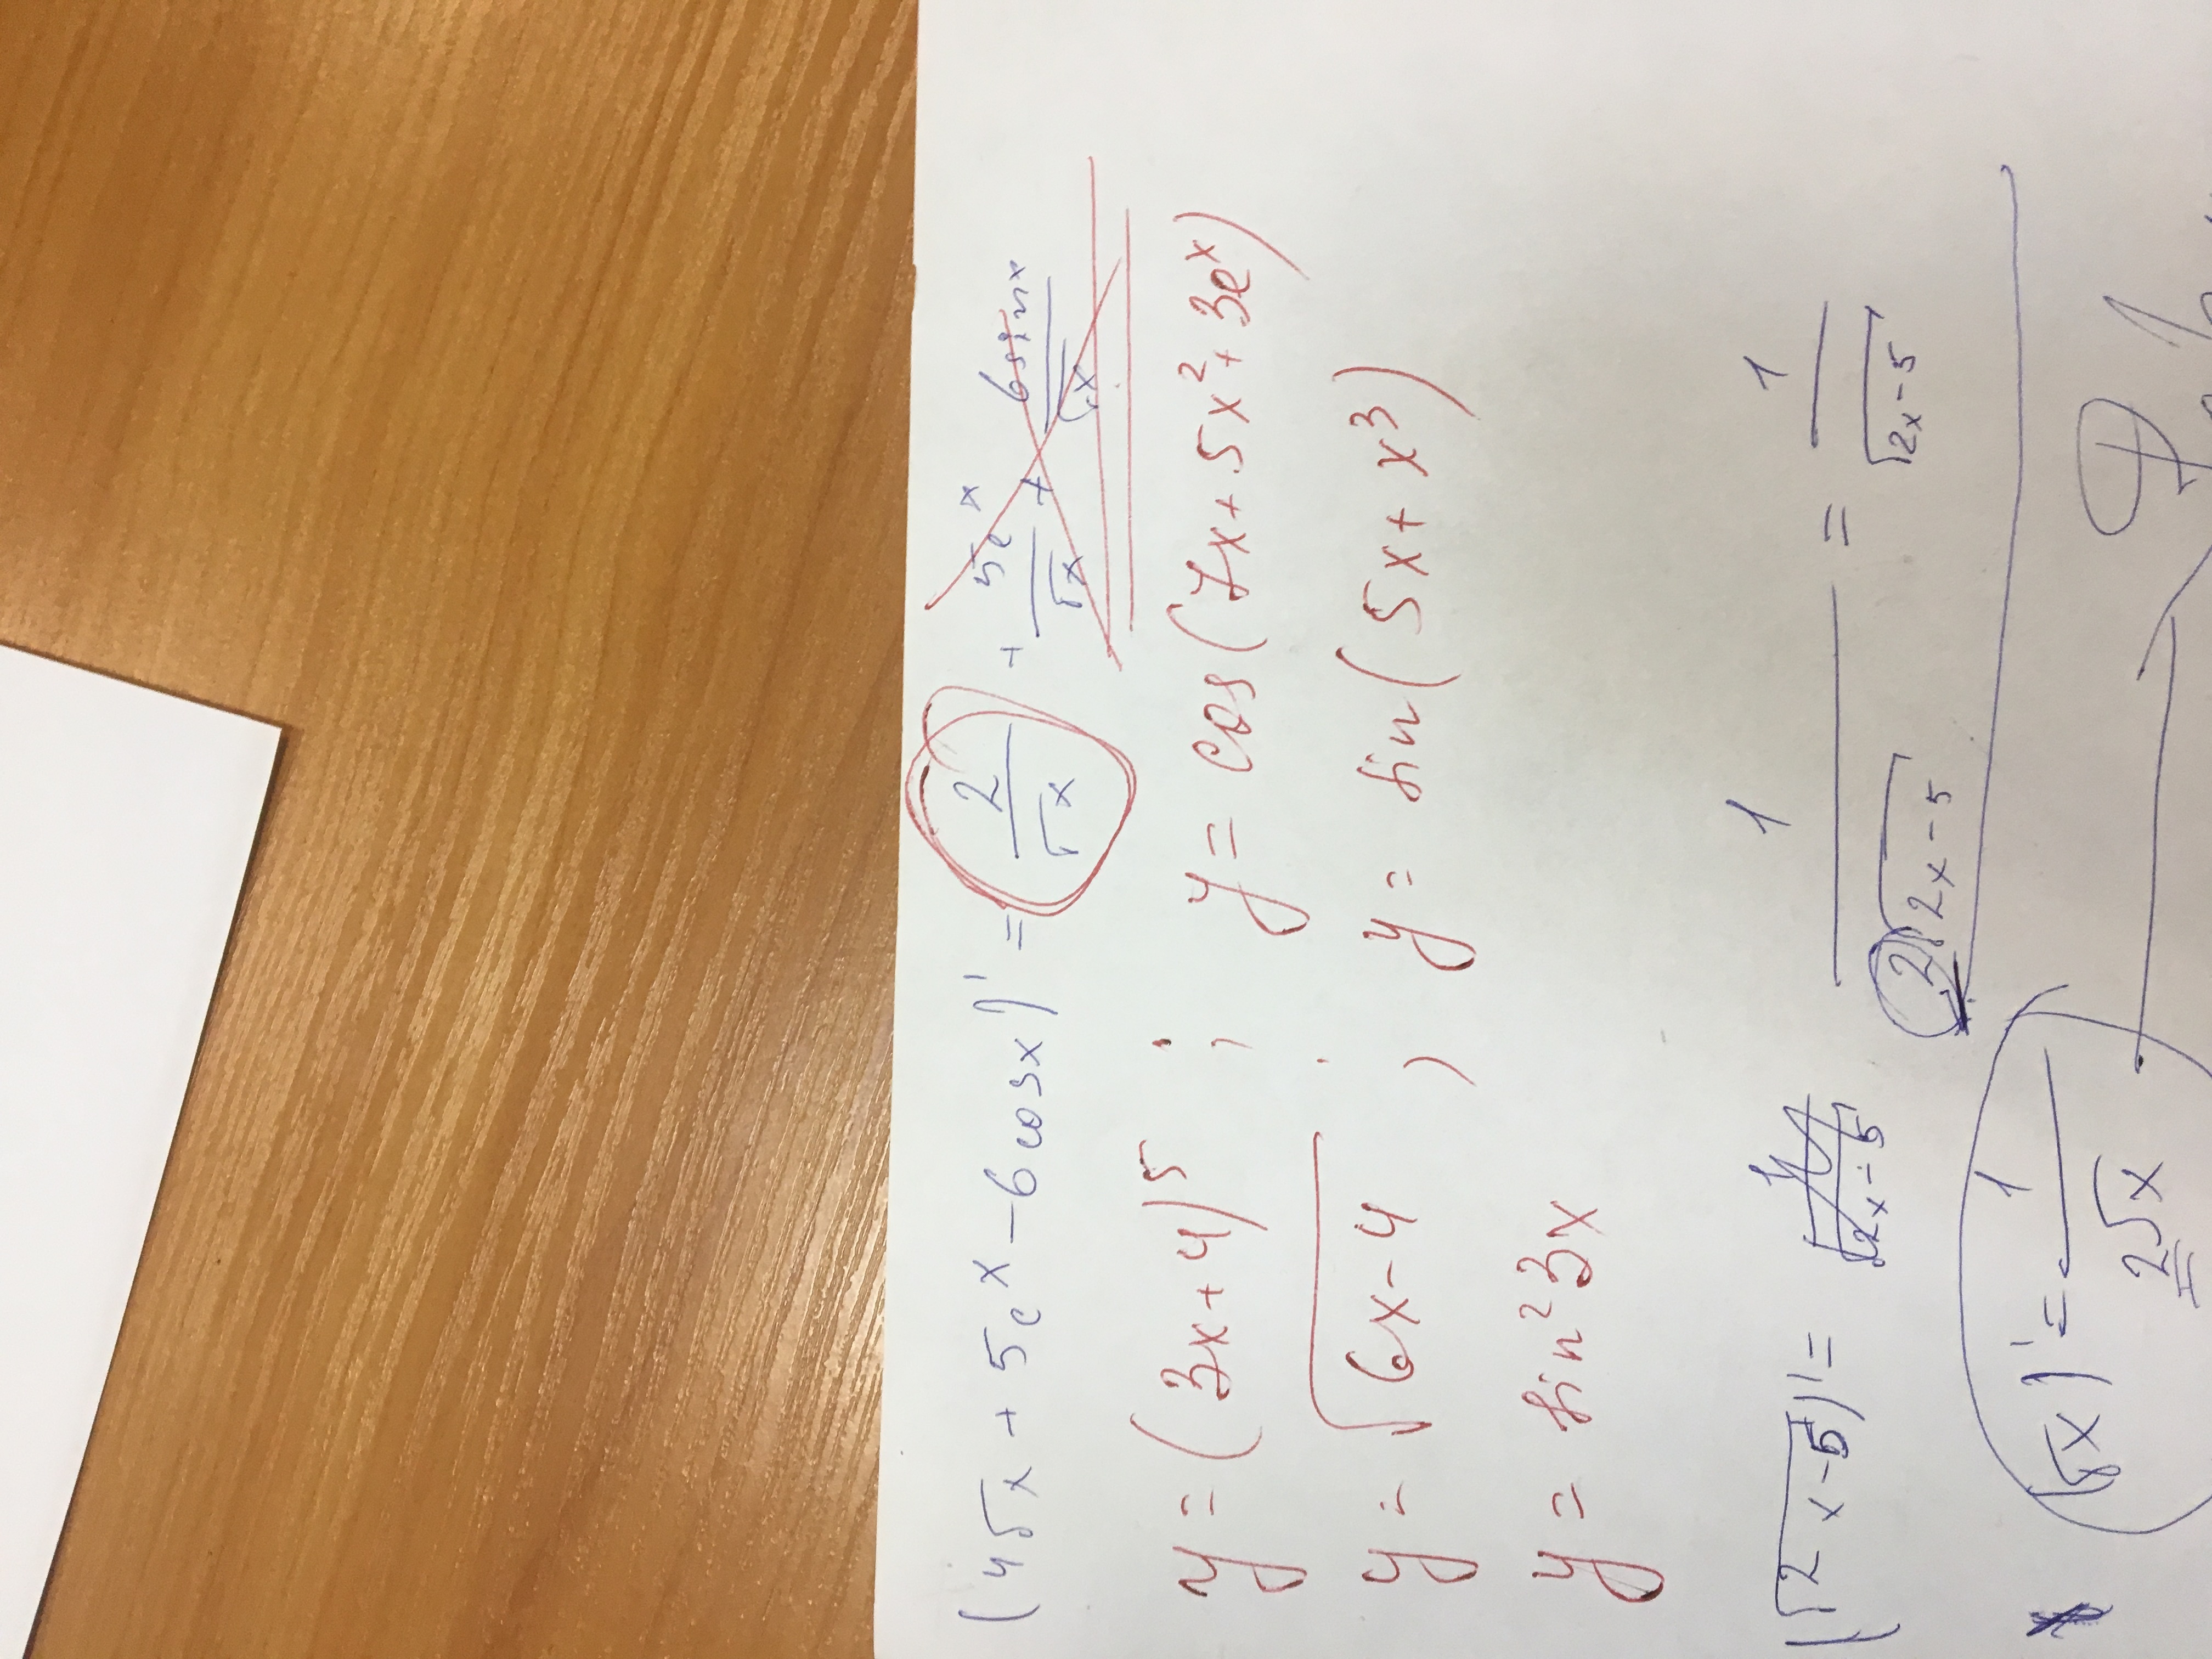 (4√x + 5eˣ − 6cosx)' = 2/√x + 5eˣ/√x + 6sinx/√x
y = (3x+4)⁵ ; y = cos(7x + 5x² + 3eˣ)
y = √(6x−4) ; y = sin(5x + x³)
y = sin²3x
(√(2x−5))' = 1/√(2x−5) 1/(2√(2x−5)) = 1/√(2x−5)
(√x)' = 1/(2√x)